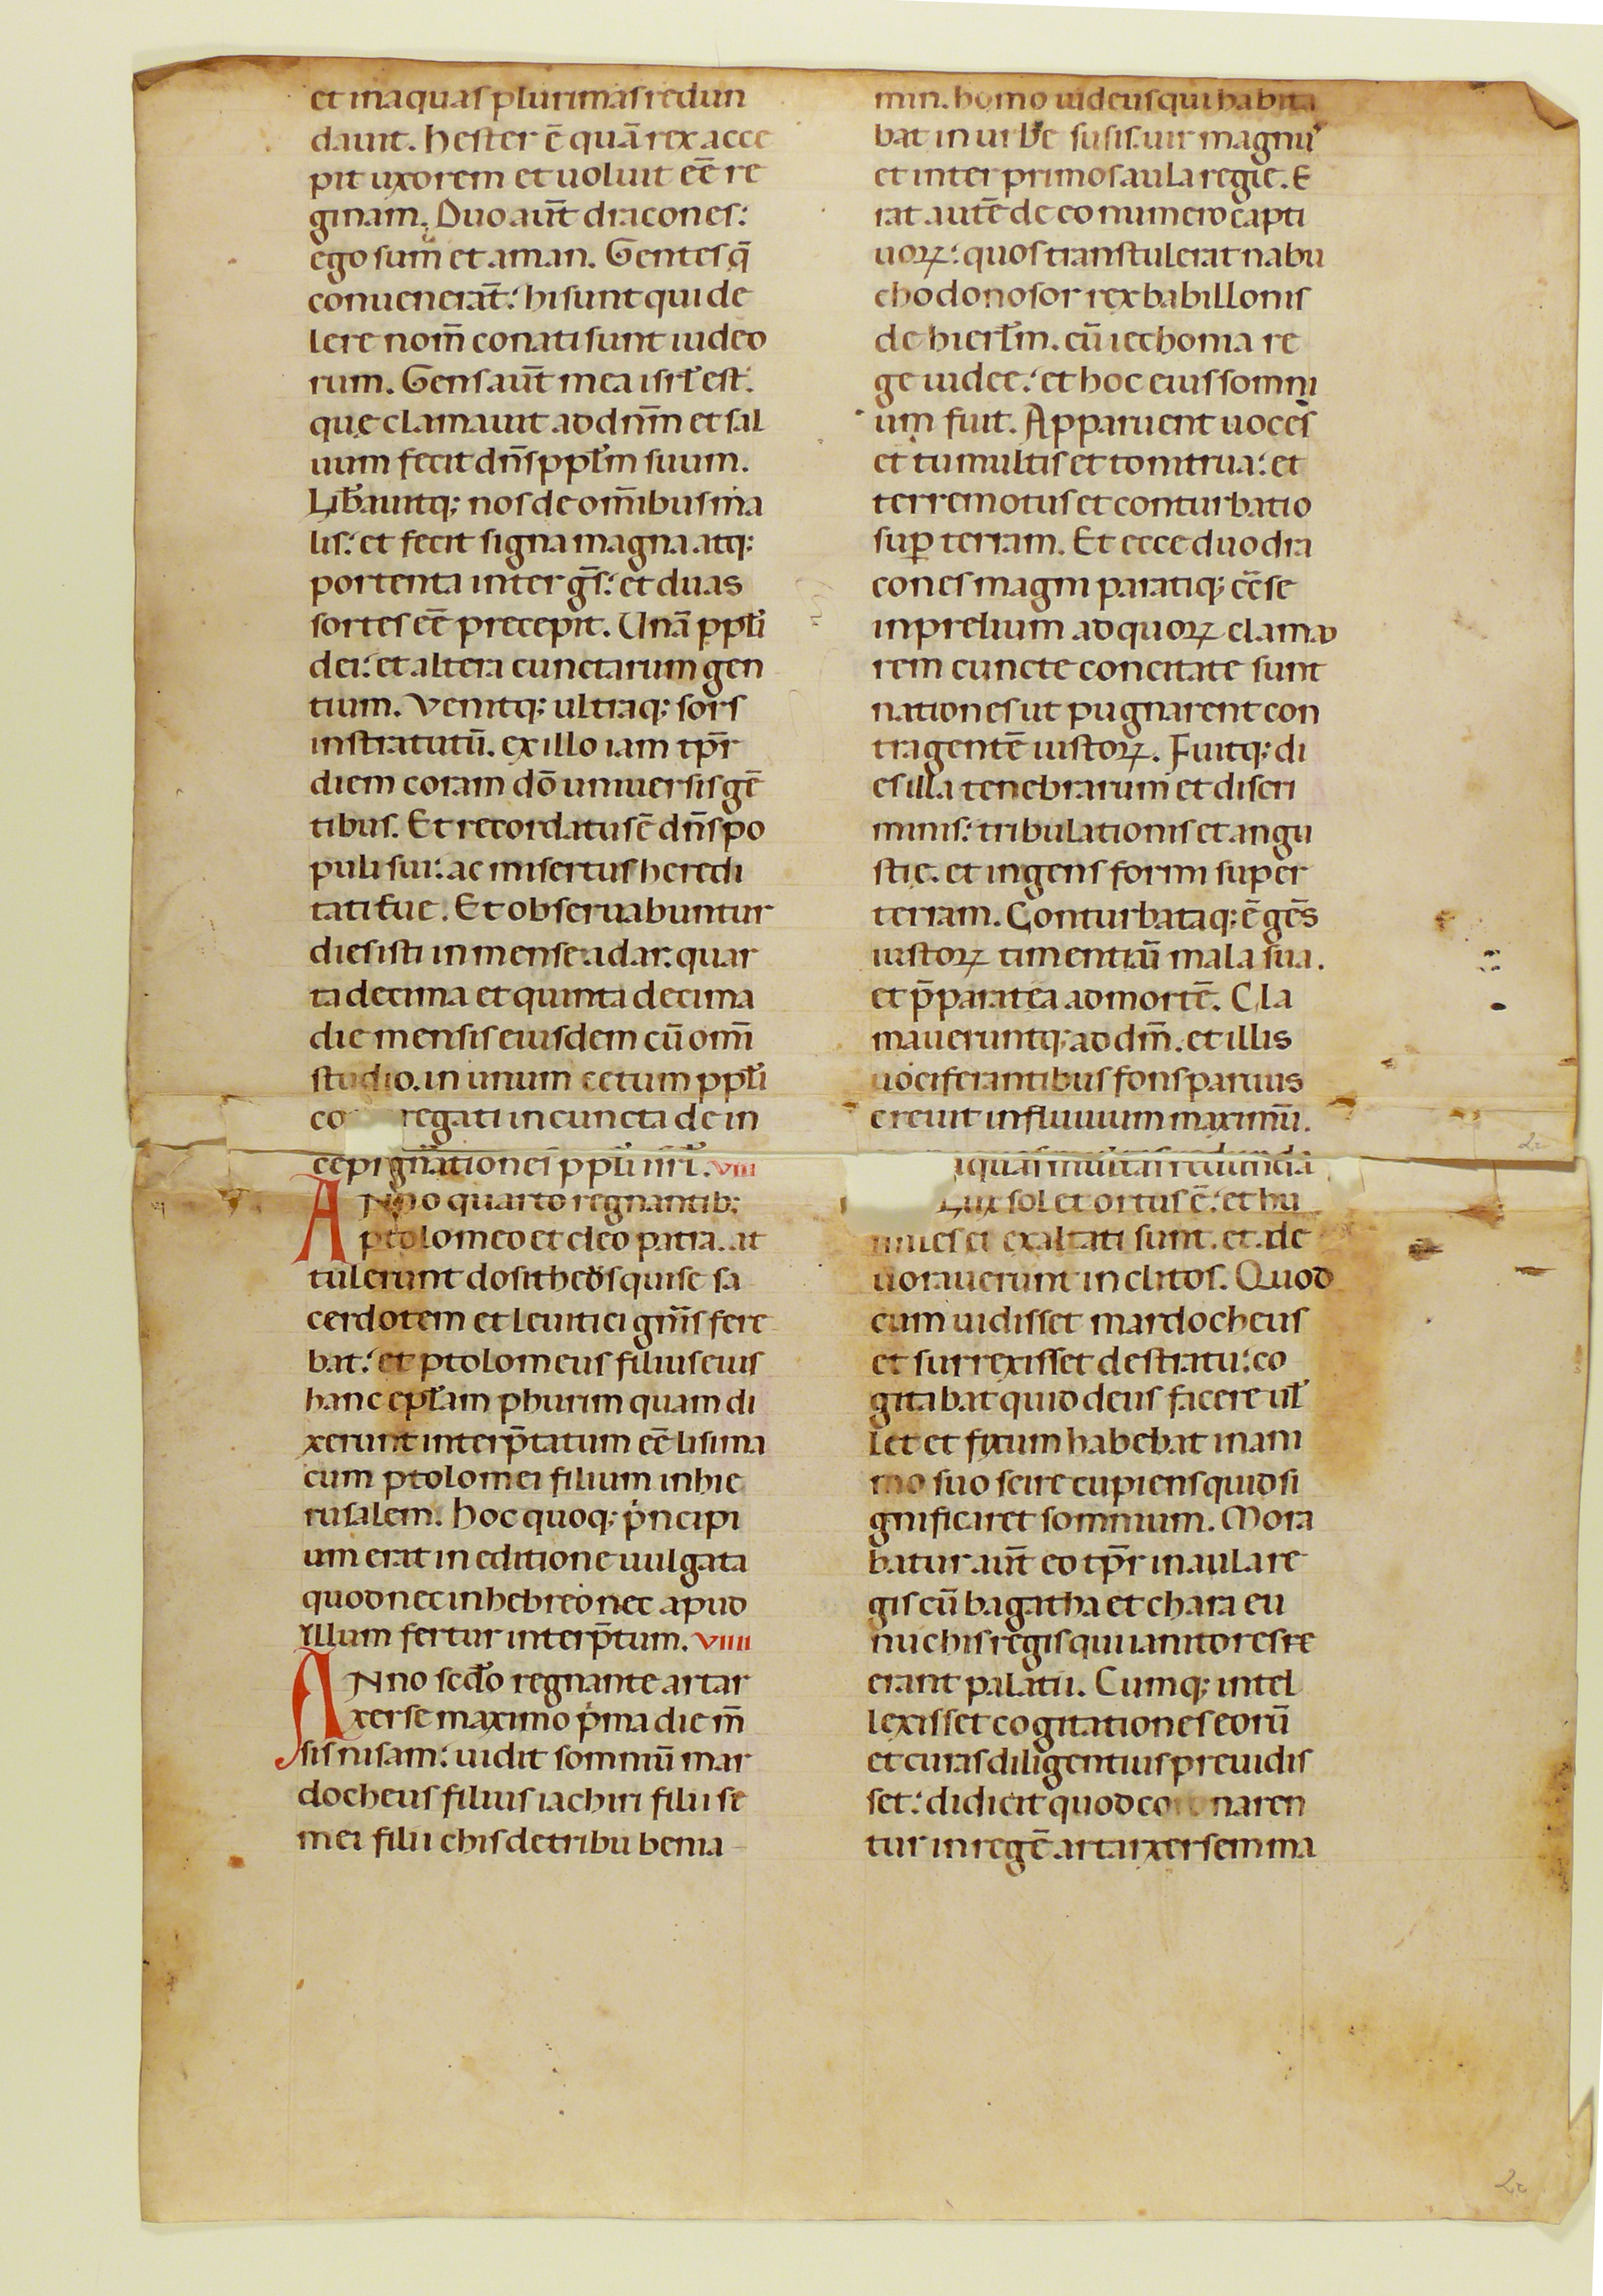 et inaquas plurimas redun
dauit. hester ē quā rex acce
pit uxorem et uoluit eē̄ re
ginam. Duo aūt dracones:
ego sum et aman. Gentes q̄
conuenerāt: hi sunt qui de
lere nom̄ conati sunt iudeo
rum. Gens aūt mea isrł est:
que clamauit ad dnm̄ et sal
uum fecit dn̄s ppłm suum.
Lib̄auitq; nos de om̄ibus ma
lis: et fecit signa magna atq;
portenta inter gs̄: et duas
sortes eē̄ precepit. Unā ppłi
dei: et altera cunctarum gen
tium. Venitq; ultraq; sors
instratutū. ex illo iam tpr̄
diem coram dō uniuersis gē
tibus. Et recordatus ē dn̄s po
puli sui: ac misertus heredi
tati sue. Et obseruabuntur
dies isti in mense adar: quar
ta decima et quinta decima
die mensis eiusdem cū om̄i
studio. in unum cetum ppłi
co regati in cuncta de in
cepi gn̄ationei ppłi isrł. viii
ANno quarto regnantib;
ptolomeo et cleo patra. at
tulerunt dositheos qui se sa
cerdotem et leuitici gn̄is fere
bat: et ptolomeus filius eius
hanc epłam phurim quam di
xerunt interp̄tatum eē̄ lisima
cum ptolomei filium in hie
rusalem. hoc quoq; pncipi
um erat in editione uulgata
quod nec in hebreo nec apud
ıllum fertur interp̄tum. viiii
ANno scdo regnante artar
xerse maximo pma die m̄
sis nisam: uidit somniū mar
docheus filius iachiri filii se
mei filii chis de tribu benia
min. homo iudeus qui habita
bat in urbe susis. uir magnu
et inter primos aula regie. E
rat autē de eo numero capti
uoꝝ: quos transtulerat nabu
chodonosor rex babillonis
de hierłm. cū iechonia re
ge iudee: et hoc eius somni
um fuit. Apparuent uoces
et tumultis et tonitrua: et
terremotus et conturbatio
sup̄ terram. Et ecce duo dra
cones magni paratiq; cē̄ se
in prelium ad quoꝝ clamo
rem cuncte concitate sunt
nationes ut pugnarent con
tra gentē iustoꝝ. Fuitq; di
es illa tenebrarum et discri
minis: tribulationis et angu
stie. et ingens formi super
terram. Conturbataq; ē gēs
iustoꝝ timentiū mala sua.
et p̄parat ea ad mortē. Cla
maueruntq; ad dm̄. et illis
uociferantibus fons paruus
creuit in fluuium maximū.
aquas multas redunda
Lux sol et ortus ē: et hu
miles exaltati sunt. et de
uorauerunt inclitos. Quod
cum uidisset mardocheus
et surrexisset de stratu: co
gitabat quid deus facere uł
let et fixum habebat in ani
mo suo scire cupiens quid si
gnificaret somnium. Mora
batur aūt eo tpr̄ in aula re
gis cū bagatha et chara eu
nuchis regis qui ianitores re
erant palatii. Cumq; intel
lexisset cogitationes eorū
et curas diligentius preuidis
set: didicit quod co naren
tur in regē artarxersem ma